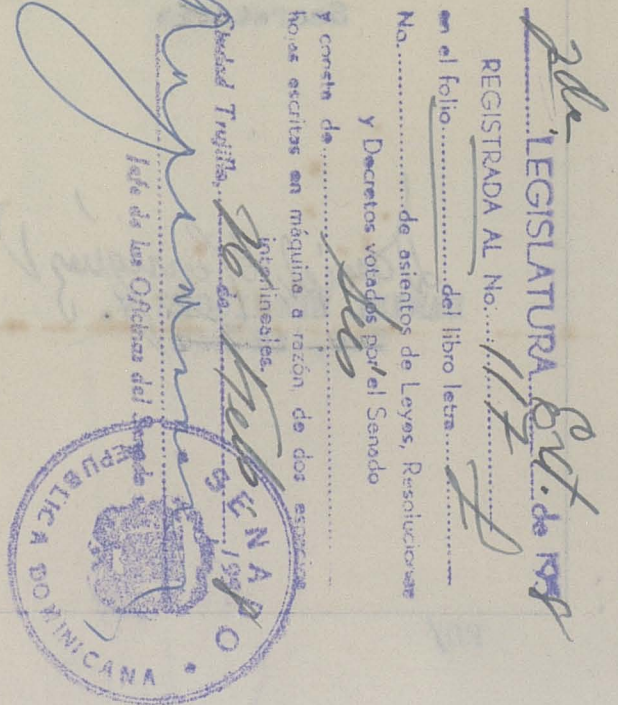 2da LEGISLATURA Ext. de 1958
REGISTRADA AL No. 117
en el folio del libro letra
No. de asientos de Leyes, Resoluciones
y Decretos votados por el Senado
y consta de
hojas escritas en máquina a razón de dos espacios
interlineales.
Ciudad Trujillo, 26 de
Jefe de las Oficinas del Senado
SENADO
REPUBLICA DOMINICANA